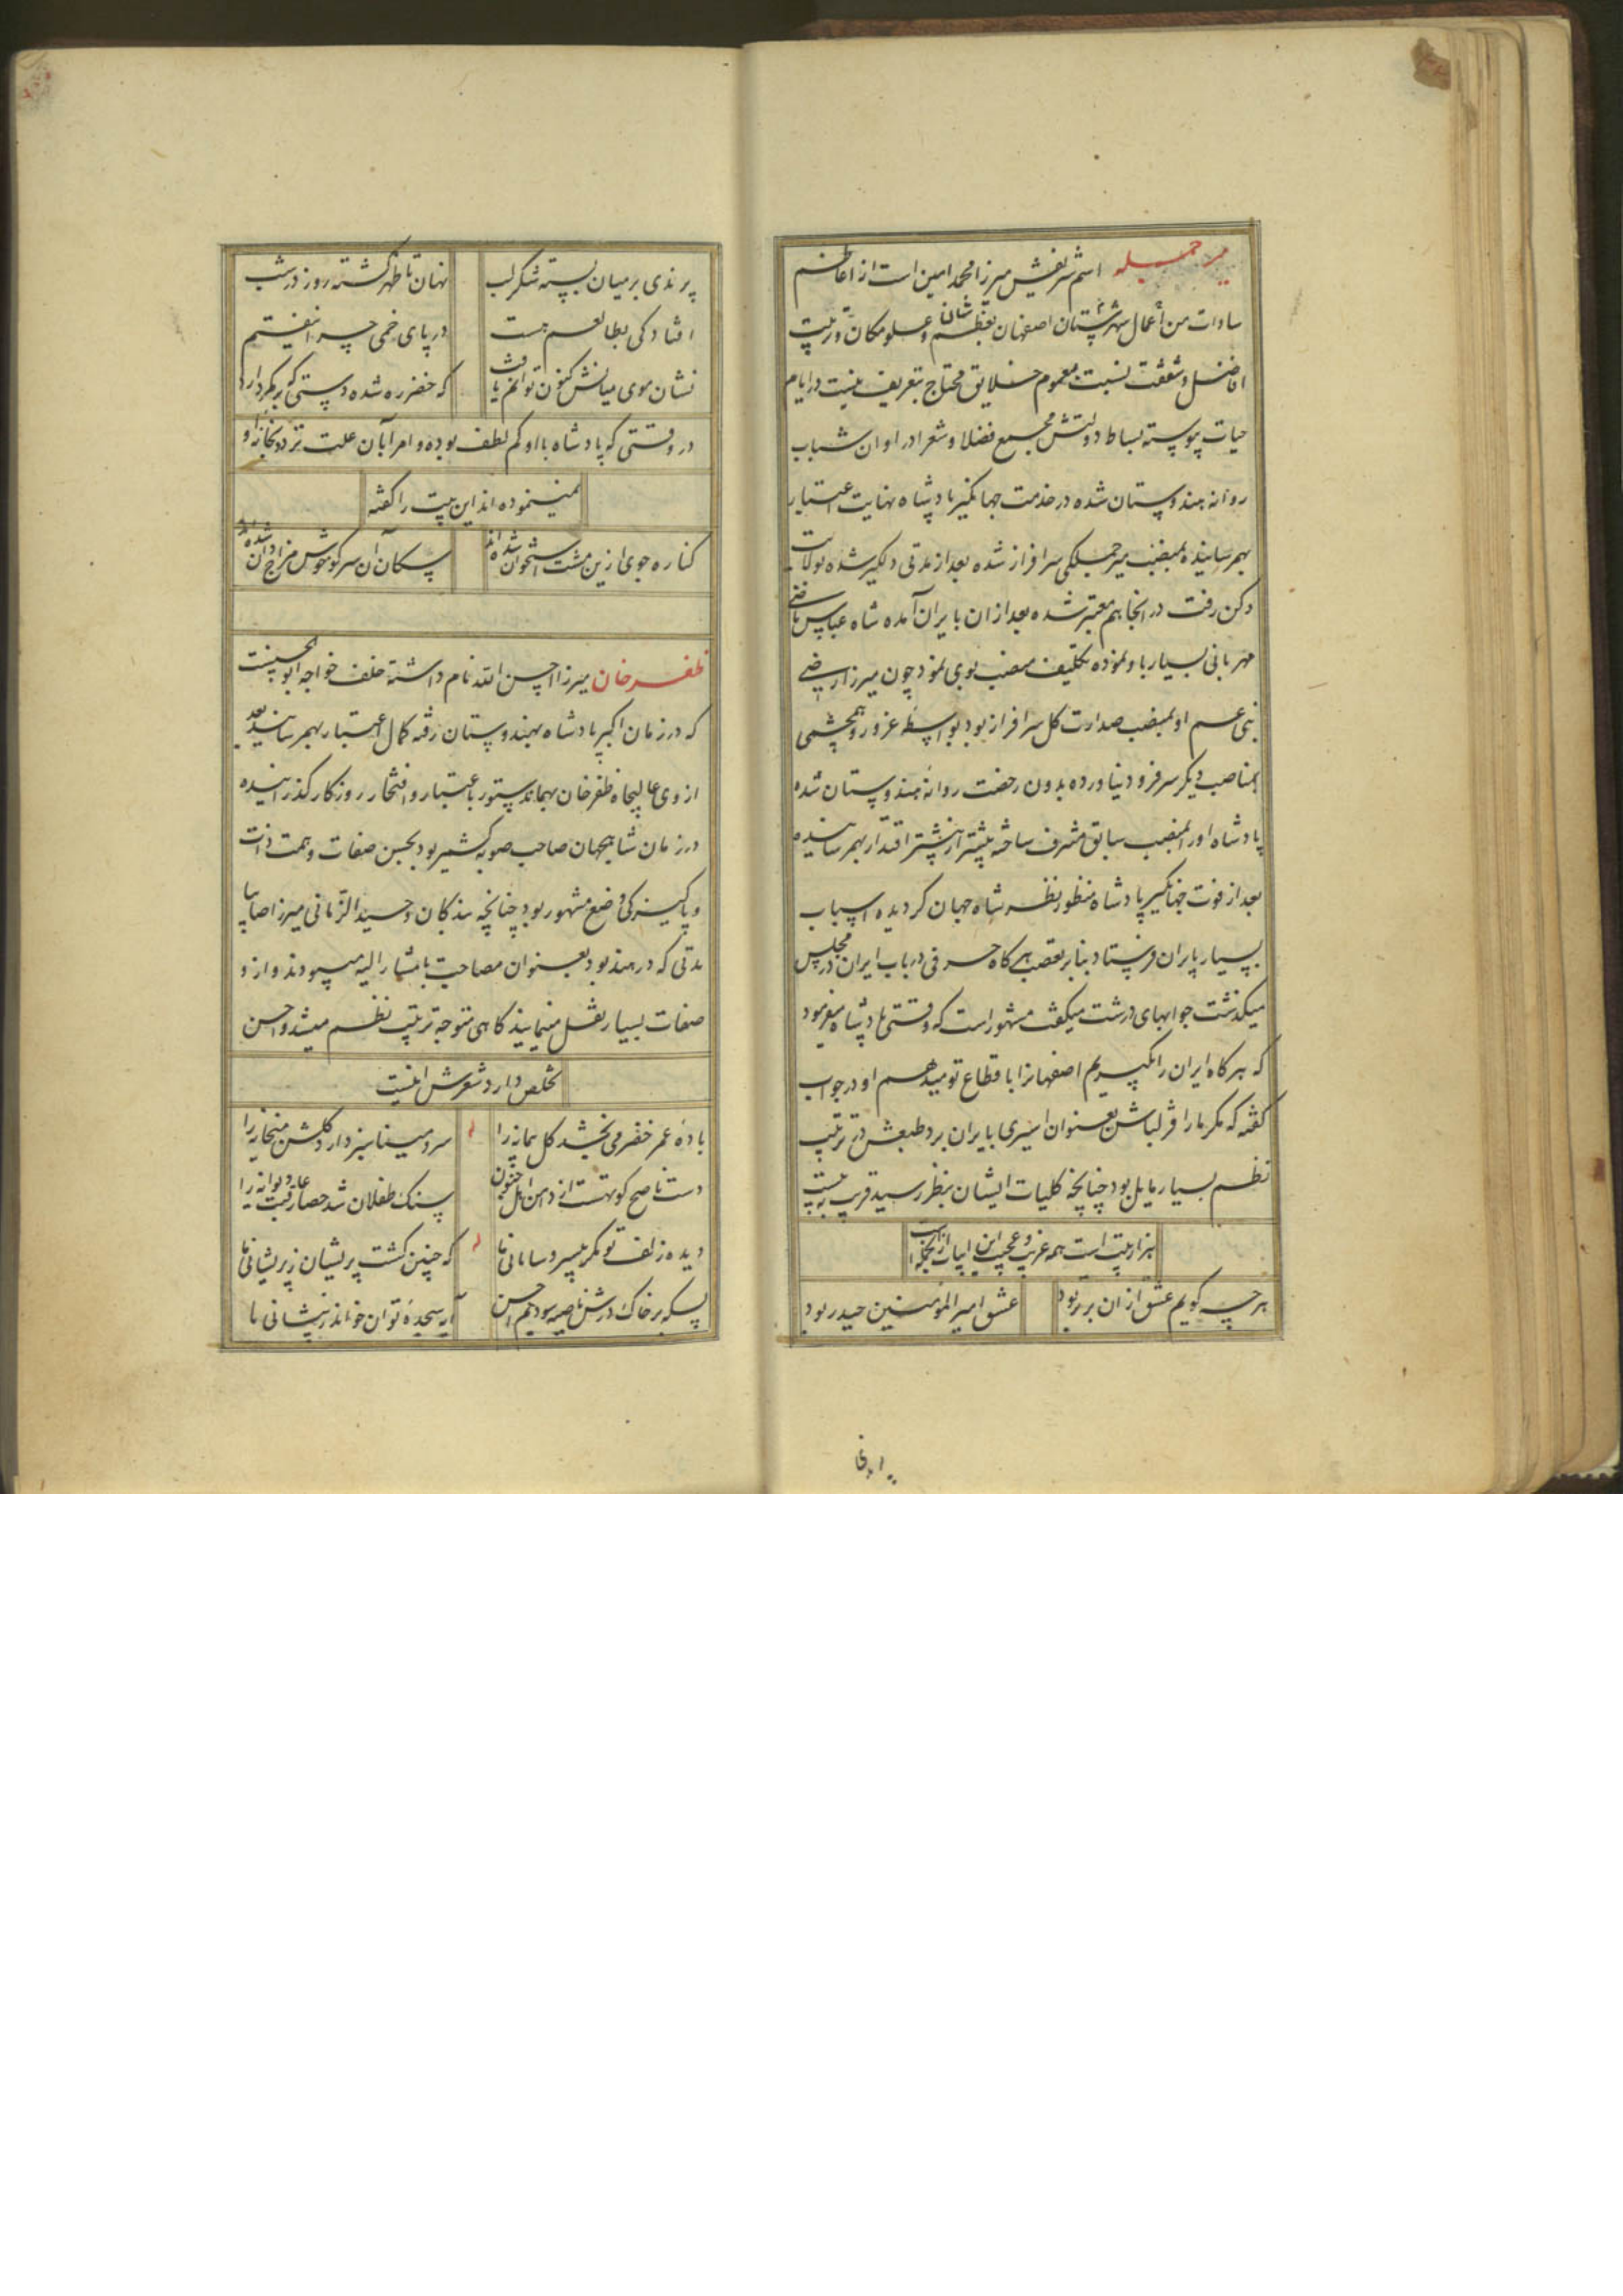 میر جمله اسم شریفش میرزا محمد امین است از اعاظم
سادات من اعمال شهرستان اصفهان بعظم شان و علو مکان و تربیت
افاضل و شفقت نسبت بعموم خلایق محتاج بتعریف نیست در ایام
حیات پیوسته بساط دولتش مجمع فضلا و شعرا در اوان شباب
روانه هندوستان شده در خدمت جهانگیر پادشاه نهایت اعتبار
بهم رسانیده بمنصب میر جملگی سرافراز شده بعد از مدتی دلگیر شده بولایت
دکن رفت در آنجا هم معتبر شده بعد از ان بایران آمده شاه عباس ماضی
مهربانی بسیار باو نموده تکلیف منصب بوی نمود چون میرزا رضی
بنی عم او بمنصب صدارت کل سرافراز بود بواسطه غرور و همچشمی
بمناصب دیگر سر فرود نیاورده بدون رخصت روانه هندوستان شده
پادشاه او را بمنصب سابق مشرف ساخته بیشتر از پیشتر اقتدار بهم رسانیده
بعد از فوت جهانگیر پادشاه منظور نظر شاه جهان گردیده اسباب
بسیار بایران فرستاد بنابر تعصب هر گاه حرفی در باب ایران در مجلس
میگذشت جوابهای درشت میگفت مشهور است که وقتی پادشاه میفرمود
که هر گاه ایران را بگیریم اصفهانرا باقطاع تو میدهم او در جواب
گفته که مگر ما را قزلباش بعنوان اسیری بایران برد طبعش در ترتیب
نظم بسیار مایل بود چنانچه کلیات ایشان بنظر رسید قریب به بیست
هزار بیت است همه غریب و عجیب این ابیات از انجمله است
هر چه گویم عشق از ان برتر بود عشق امیر المؤمنین حیدر بود
پرندی بر میان بسته شکر لب نهان تا ظهر گشته روز در شب
افتادگی بطالعم هست در پای خمی چرا نیفتم
نشان موی میانش کنون توانم یافت که خضر ره شده دستی که بر کمر دارد
در وقتی که پادشاه با او کم لطف بوده و امرا بآن علت تردد بخانه او
نمینموده اند این بیت را گفته
کناره جوی ازین مشت استخوان شده اند سگان آن سر کو خوش مزاج دان شده اند
ظفر خان میرزا احسن الله نام داشته خلف خواجه ابو الحسنست
که در زمان اکبر پادشاه بهندوستان رفته کمال اعتبار بهم رسانید بعد
از وی عالیجاه ظفر خان بهمان دستور باعتبار و افتخار روزگار گذرانیده
در زمان شاهجهان صاحب صوبه کشمیر بود بحسن صفات و همت ذات
و پاکیزگی وضع مشهور بود چنانچه بندگان وحید الزمانی میرزا صائبا
مدتی که در هند بود بعنوان مصاحبت با مشار الیه میبودند و از و
صفات بسیار نقل مینمایند گاهی متوجه ترتیب نظم میشد و احسن
تخلص دارد شعرش اینست
باده عمر خضر می بخشد گل پیمانه را سرو مینا سبز دارد گلشن میخانه را
دست ناصح کوتهست از دامن اهل جنون سنگ طفلان شد حصار عافیت دیوانه را
دیده زلف تو مگر بیسر و سامانی ما که چنین گشت پریشان ز پریشانی ما
بسکه بر خاک درش ناصیه سودیم احسن آیه سجده توان خواند ز پیشانی ما
پرندی